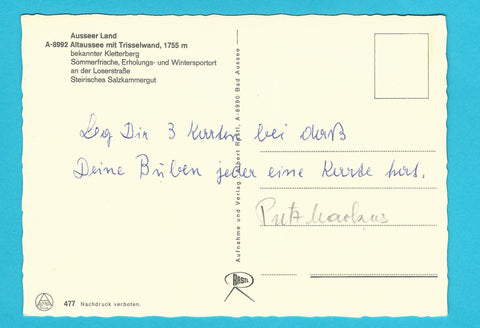 Ausseer Land
A-8992 Altaussee mit Trisselwand, 1755 m
bekannter Kletterberg
Sommerfrische, Erholungs- und Wintersportort
an der Loserstraße
Steirisches Salzkammergut
Leg Dir 3 Karten bei daß
Deine Buben jeder eine Karte hat.
Aufnahme und Verlag Robert Rastl, A-8990 Bad Aussee
RASTL
477 Nachdruck verboten.